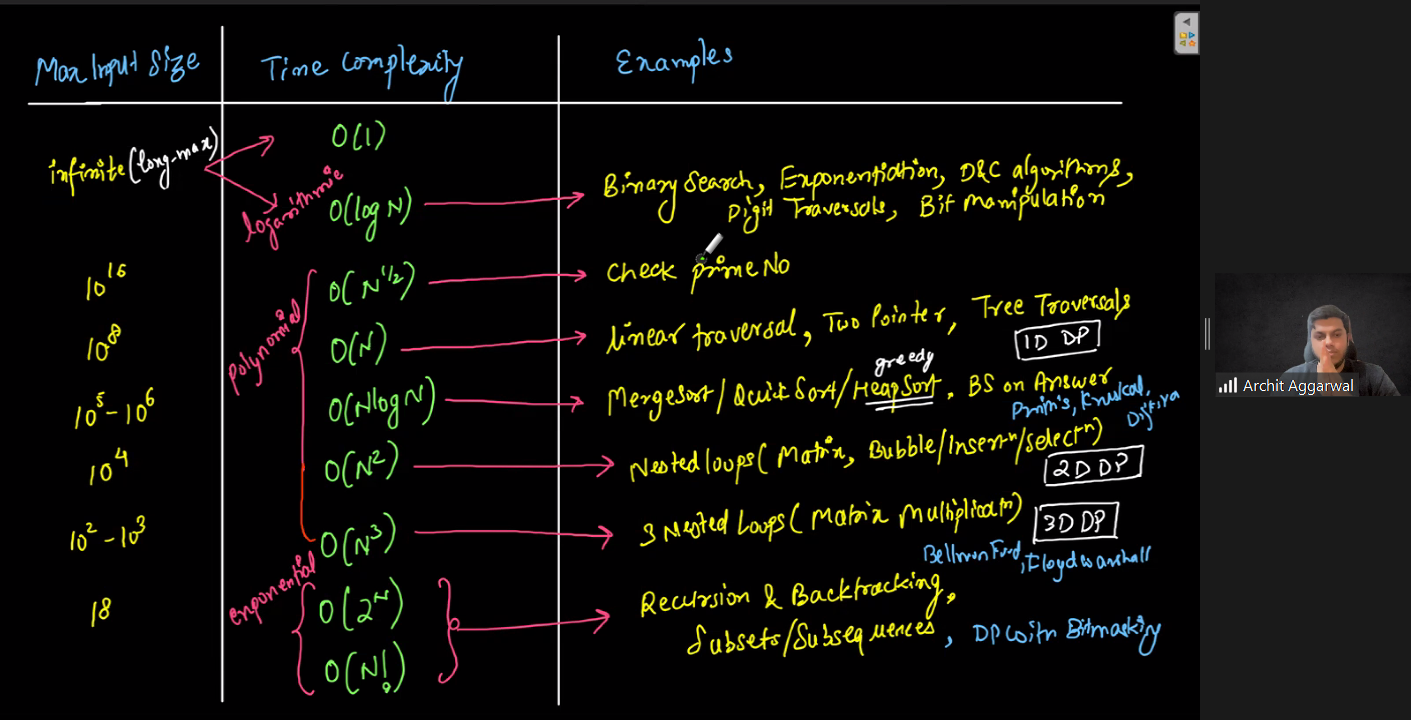 Max Input Size Time Complexity Examples
infinite (long-max) O(1)
logarithmic O(log N) Binary Search, Exponentiation, D&C algorithms,
Digit Traversals, Bit Manipulation
10^16 O(N^1/2) Check prime No
polynomial
10^8 O(N) linear traversal, Two Pointer, Tree Traversals
1D DP
greedy
10^5 - 10^6 O(N log N) MergeSort/Quick Sort/HeapSort, BS on Answer
Prim's, Kruskal,
Dijkstra
10^4 O(N^2) Nested loops (Matrix, Bubble/Insert^n/select^n)
2D DP
10^2 - 10^3 O(N^3) 3 Nested Loops (Matrix Multiplicat^n)
3D DP
Bellman Ford, Floyd warshall
exponential
18 O(2^N) Recursion & Backtracking,
Subsets/Subsequences, DP with Bitmasking
O(N!)
Archit Aggarwal